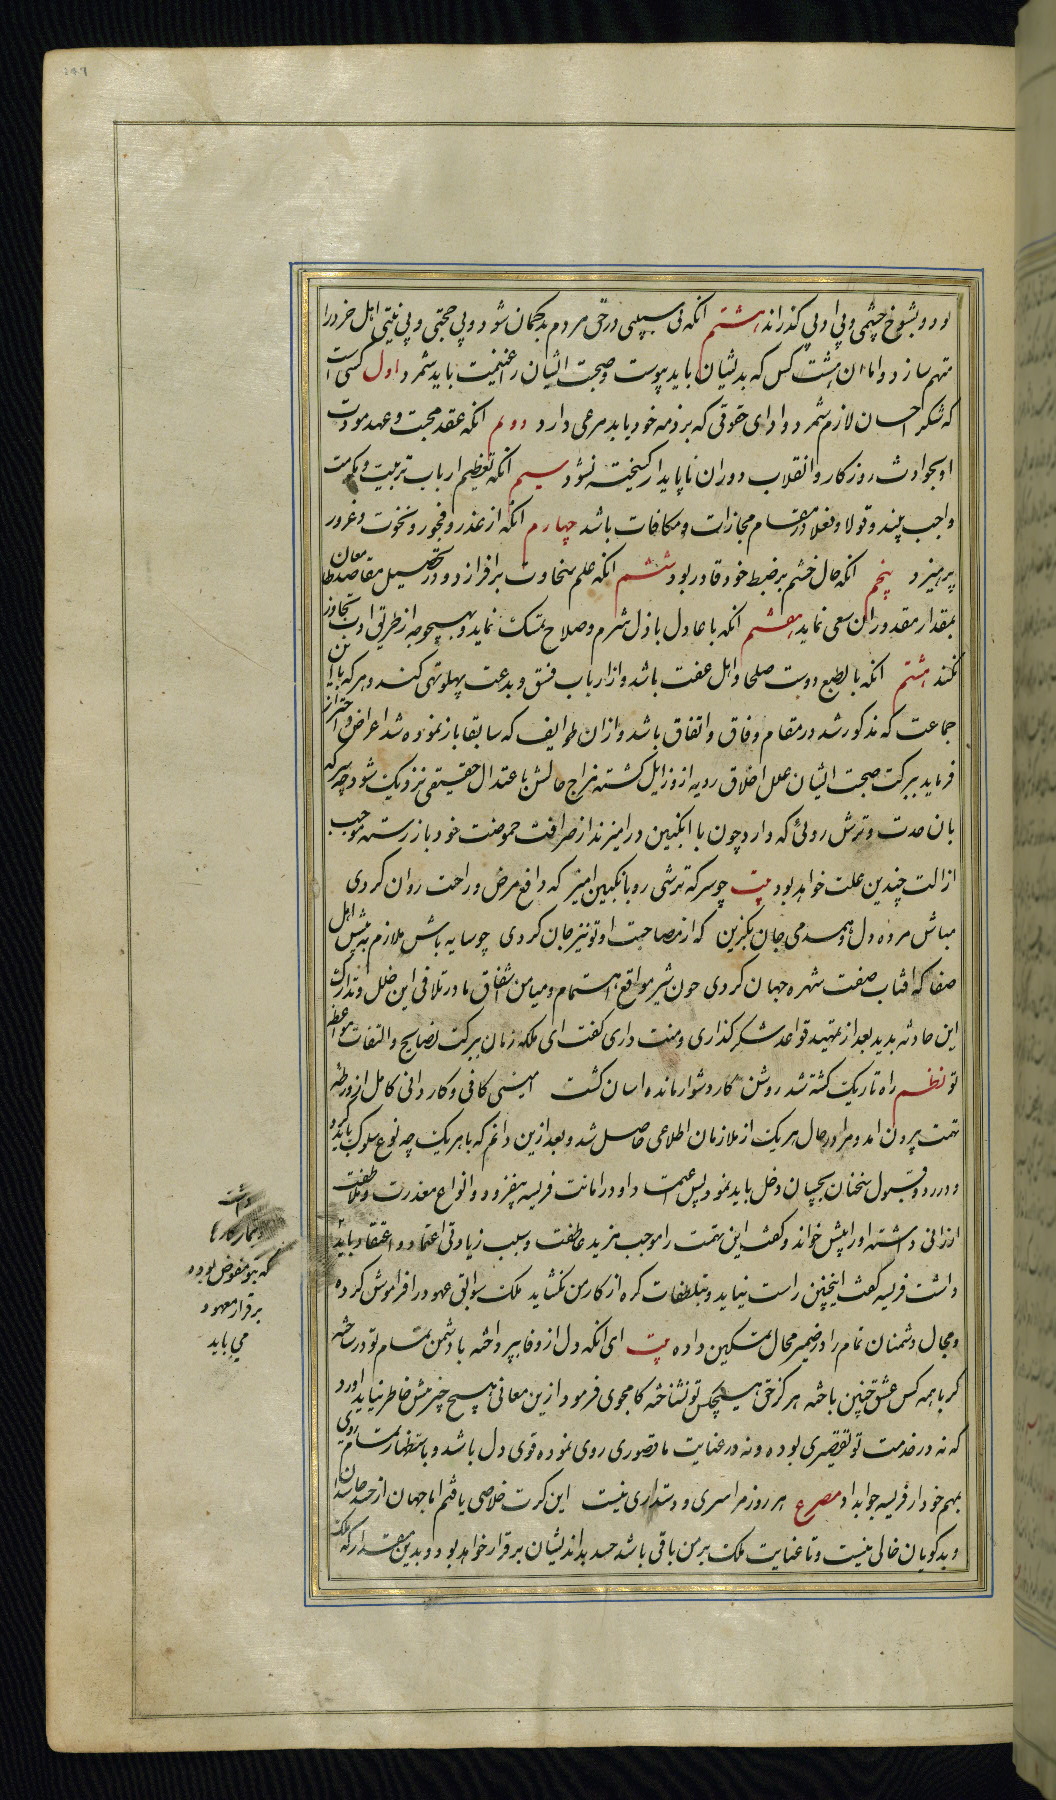 بود و بشوخ چشمی و بی ادبی گذراند هشتم انکه بی سببی در حق مردم بدگمان شود و بی حجتی و بی نیتی اهل خرد را
متهم سازد و اما ان هشت کس که بدیشان باید پیوست و صحبت ایشان را غنیمت باید شمرد اول کسی است
که شکر احسان لازم شمرد و ادای حقوقی که بر ذمه خود یابد مرعی دارد دوم انکه عقد محبت و عهد مودت
او بحوادث روزکار و انقلاب دوران ناپایدار کسیخته نشود سیم انکه تعظیم ارباب تربیت و مکرمت
واجب بیند و قولا و فعلا در مقام مجازات و مکافات باشد چهارم انکه از غدر و فجور و نخوت و غرور
پرهیزد پنجم انکه حال خشم بر ضبط خود قادر بود ششم انکه علم سخاوت برافرازد و در تحصیل مقاصد
بمقدار مقدور ان سعی نماید هفتم انکه با عادل باذل شرم و صلاح تمسک نماید و بهیچوجه از طریق ادب تجاوز
نکند هشتم انکه بالطبع دوست صلحا و اهل عفت باشد و از ارباب فسق و بدعت پهلو تهی کند و هر که با این
جماعت که مذکور شد در مقام وفاق و اتفاق باشد و از ان طوایف که سابقا باز نموده شد اعراض و احتراز
فرماید ببرکت صحبت ایشان علل اخلاق ردیه از وزایل کشته مزاج حالش باعتدال حقیقی نزدیک شود چه سرکه
بان حدت و ترش روئی که دارد چون با انکبین درامیزند از صرافت حموضت خود باز رسته موجب
ازالت چندین علت خواهد بود بیت چو سرکه ترشی رو بانکبین امیز که دافع مرض و راحت روان کردی
مباش مرده دل و همدمی جان بکزین که از مصاحبت او تو نیز جان کردی چو سایه باش ملازم به پیش اهل
صفا که افتاب صفت شهره جهان کردی چون شیر مواقع اهتمام و میامن اشفاق مادر تلافی این خلل و تدارک
این حادثه بدید بعد از تمهید قواعد شکرکذاری و منت داری کفت ای ملکه زمان ببرکت نصایح و التفات مواعظ
تو نظم راه تاریک کشته شد روشن کار دشوار مانده اسان کشت امینی کافی و کاردانی کامل از ورطه
تهمت بیرون امد و مرا در حال هر یک از ملازمان اطلاعی حاصل شد و بعد ازین دانم که با هر یک چه نوع سلوک باید کرد
و در رد و قبول سخنان بچسان دخل باید نمود پس عمت داو در امانت فریسه بیفزود و انواع معذرت و ملاطفت
ارزانی داشته او را پیش خواند و کفت این تهمت را موجب مزید عاطفت و سبب زیادتی اعتماد و اعتقاد باید
داشت فریسه کفت اینچنین راست نیاید و بتلطفات کره از کار من نکشاید ملک سوابق عهود را فراموش کرده
و مجال دشمنان تمام را در ضمیر محال تمکین داده بیت ای انکه دل از وفا بپرداخته با دشمن تمام تو در ساخته
کر با همه کس عشق چنین باخته هرکز حق هیچکس تو نشناخته کامجوی فرمود ازین معانی هیچ چیز پیش خاطر نیاید اورد
که نه در خدمت تو تقصیری بوده و نه در عنایت ما قصوری روی نموده قوی دل باش و باستظهار تمام روی
بمهم خود ار فریسه جواب داد مصرع هر روز مرا سری و دستاری نیست این کرت خلاصی یافتم اما جهان از حسد حاسدان
و بدکویان خالی نیست و تا عنایت ملک بر من باقی باشد حسد بداندیشان برقرار خواهد بود و بدین مقدار که ملک
داشت
و تیمار کارها
که بتو مفوض بوده
برقرار معهود
می باید